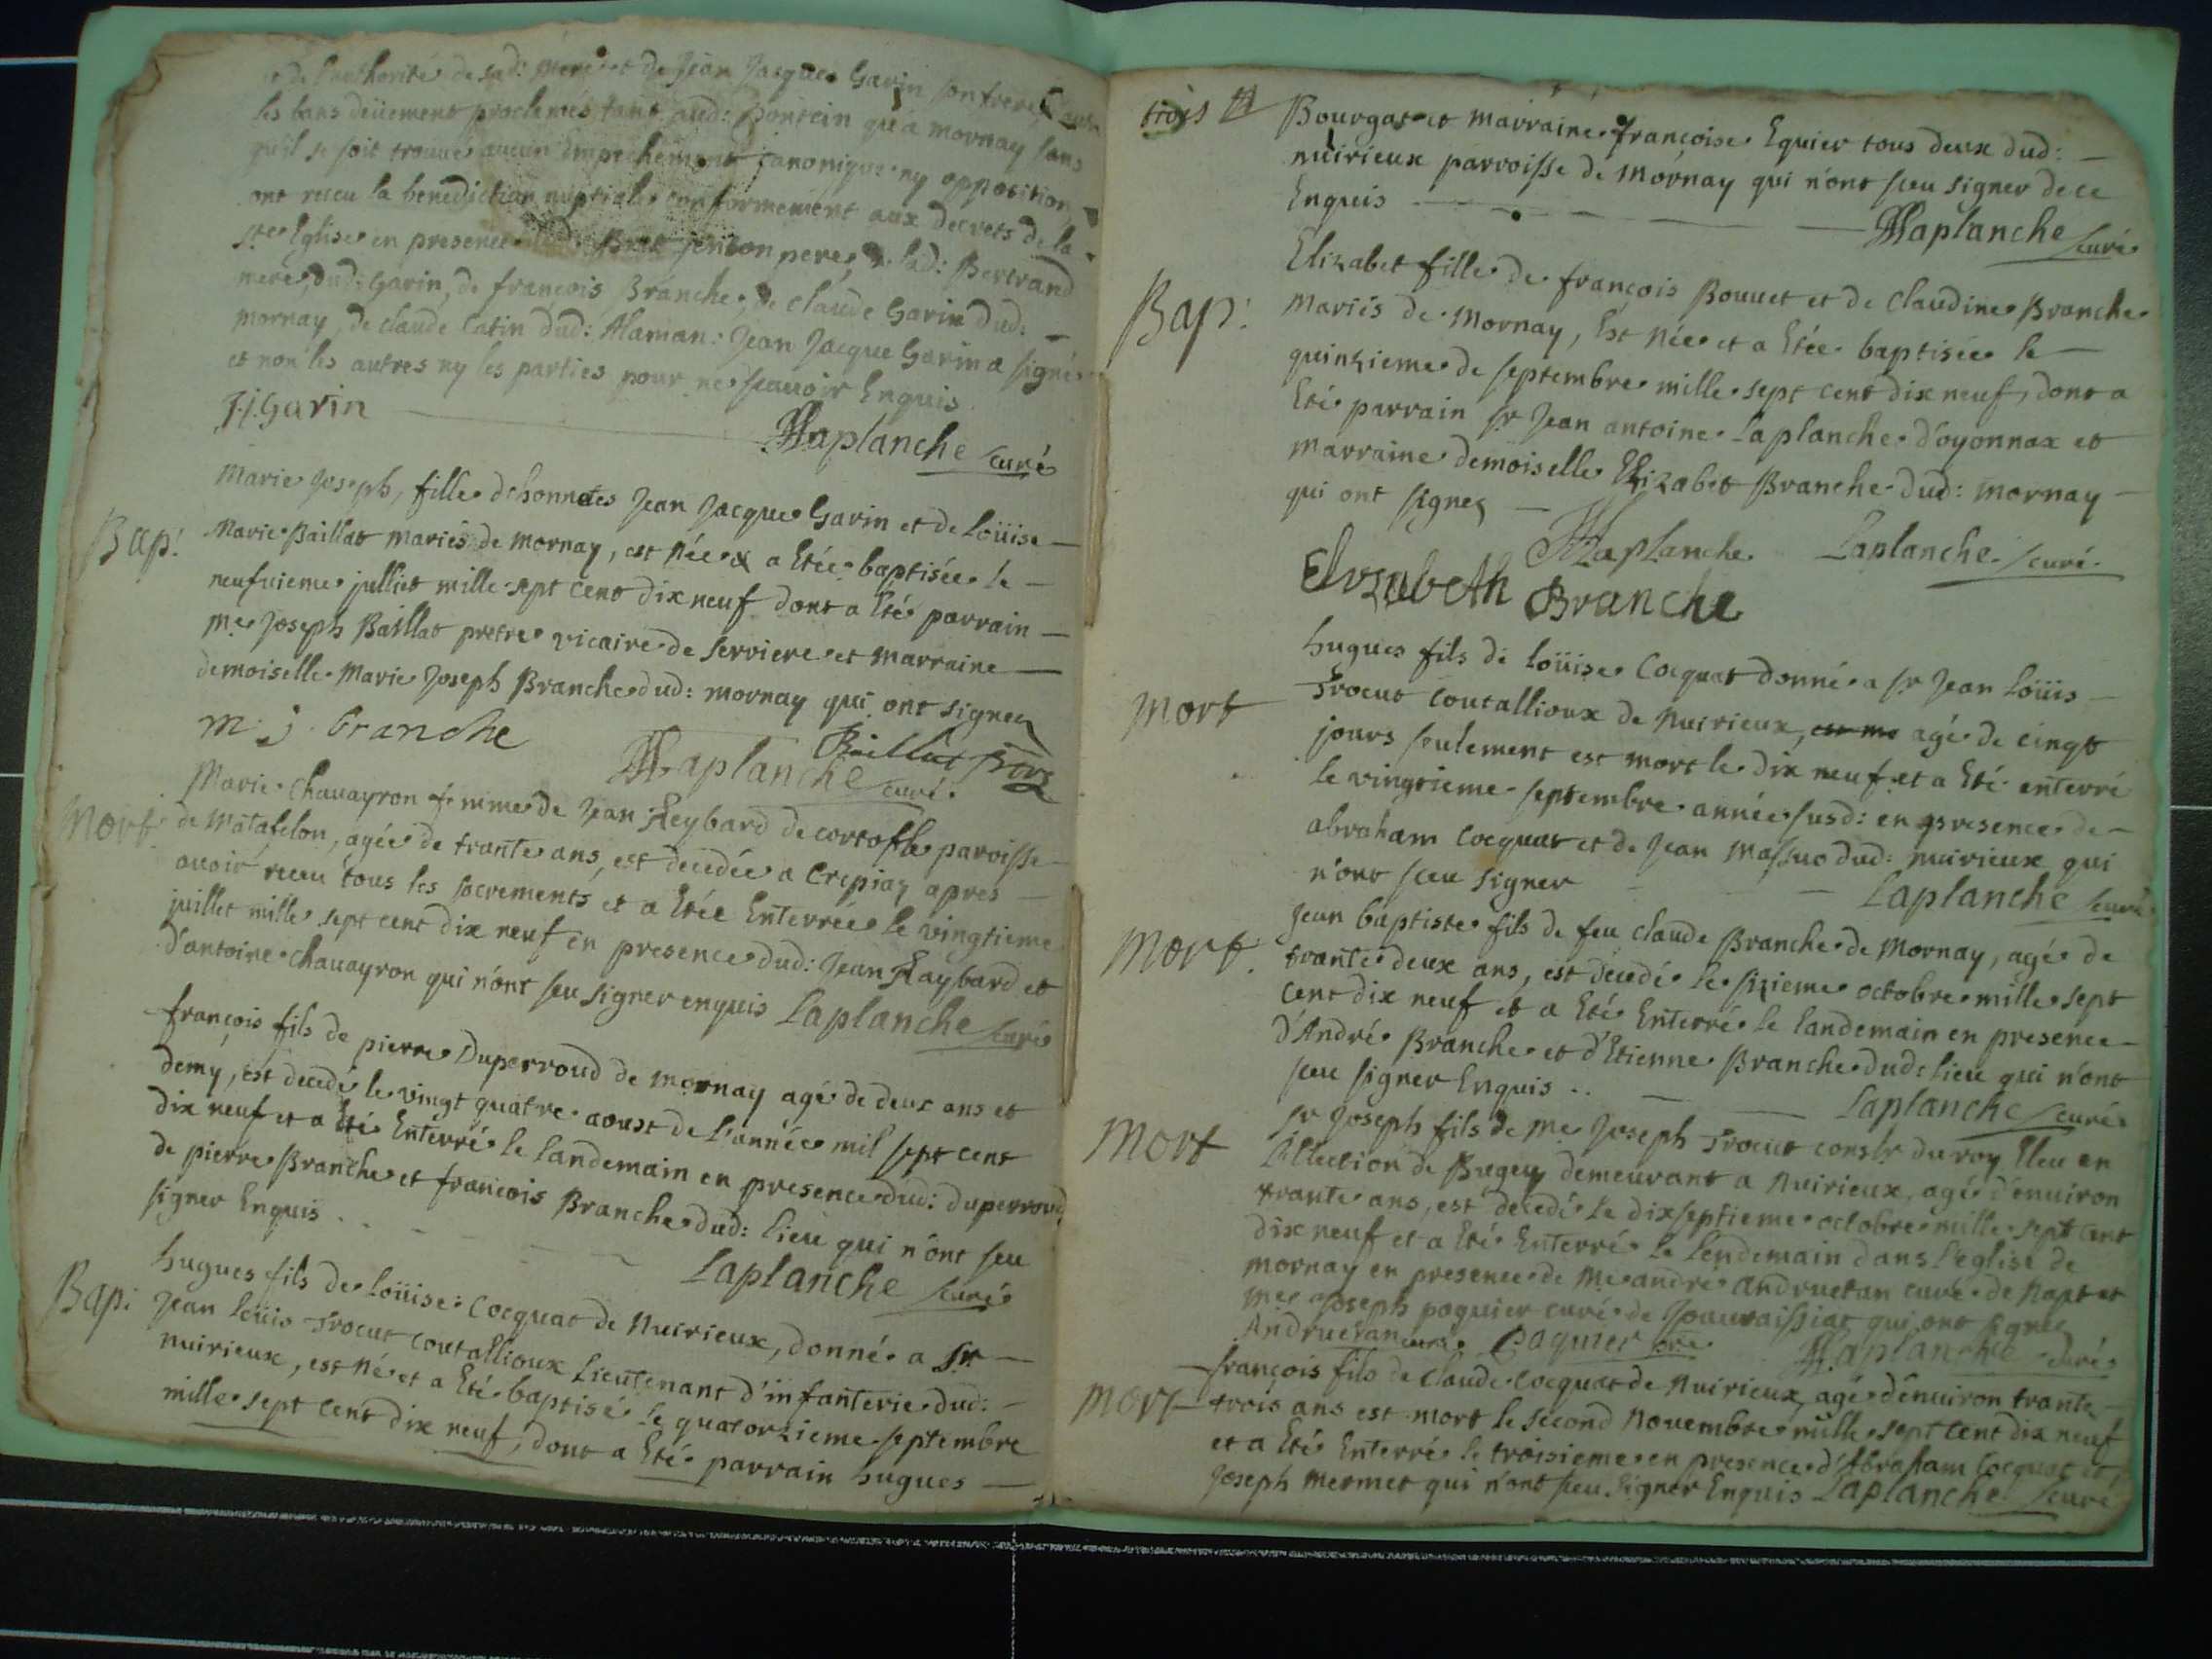 de l'authorité de sad: mere et de Jean Jacque Garin son frere
les bans deüement proclamés tant aud: Poncin qu'a mornay sans
qu'il se soit trouué aucun Empechement canonique ny opposition
ont receu la benediction nuptiale conformement aux decrets de la
ste Eglise en presence pere, de lad: Bertrand
mere, dud: Garin, de francois Branche, de claude Garin dud:
mornay, de claude Catin dud: Alaman. Jean Jacque Garin a signé
et non les autres ny les parties pour ne scauoir Enquis
J.J. Garin
Laplanche curé
Bap:
Marie Joseph, fille d'honnetes Jean Jacque Garin et de Loüise
Marie Baillat mariés de mornay, est née & a Etée baptisée le
neufuieme julliet mille sept cent dix neuf dont a Eté parrain
me Joseph Baillat pretre vicaire de Serriere et marraine
demoiselle Marie Joseph Branche dud: mornay qui ont signez
m: j. branche
Baillat ptre
Laplanche curé
Mort
Marie Chauayron femme de Jean Reybard de paroisse
de Matafelon, agée de trante ans, est decedée a Crepiaz apres
auoir receu tous les sacrements et a Etée Enterrée le vingtieme
juillet mille sept cent dix neuf en presence dud: Jean Raybard et
d'antoine chauayron qui n'ont seu signer enquis Laplanche curé
françois fils de pierre Duperroud de mornay agé de deux ans et
demy, est decedé le vingt quatre aoust de l'année mil sept cent
dix neuf et a Eté Enterré le landemain en presence dud: duperroud
de pierre Branche et francois Branche dud: lieu qui n'ont seu
signer Enquis
Laplanche curé
Bap:
hugues fils de loüise Cocquat de Nuirieux, donné a sr
Jean loüis Trocut coutallioux Lieutenant d'infanterie dud:
nuirieux, est né et a Eté baptisé le quatorzieme septembre
mille sept cent dix neuf, dont a Eté parrain hugues
trois
Bourgat et marraine françoise Equier tous deux dud:
nuirieux parroisse de mornay qui n'ont sceu signer de ce
Enquis
Laplanche curé
Bap:
Elizabet fille de françois Bouuet et de Claudine Branche
Mariés de Mornay, Est née et a Etée baptisée le
quinzieme de septembre mille sept cent dix neuf, dont a
Eté parrain sr Jean antoine Laplanche d'oyonnax et
marraine demoiselle Elizabet Branche dud: mornay
qui ont signez
Laplanche Laplanche curé
Elysabeth Branche
Mort
hugues fils de loüise Cocquat donné a sr Jean loüis
Trocut coutallioux de Nuirieux, agé de cinqt
jours seulement est mort le dix neuf et a Eté enterré
le vingtieme septembre année susd: en presence de
abraham cocquat et de Jean dud: nuirieux qui
n'ont sceu signer
Laplanche curé
Mort
Jean baptiste fils de feu claude Branche de Mornay, agé de
trante deux ans, est decedé le sixieme octobre mille sept
cent dix neuf et a Eté Enterré le landemain en presence
d'André Branche et d'Etienne Branche dud: lieu qui n'ont
sceu signer Enquis
Laplanche curé
Mort
Sr Joseph fils de me Joseph Trocut conslr du roy Eleu en
L'Ellection de Bugey demeurant a Nuirieux, agé d'enuiron
trante ans, est decedé le dixseptieme octobre mille sept cent
dix neuf et a Eté Enterré le lendemain dans l'eglise de
mornay en presence de me andré andruetan curé de Napt et
mre Joseph poquier curé de qui ont signez
Andruetan curé Laplanche curé
Mort
françois fils de Claude Cocquat de Nuirieux, agé d'enuiron trante
trois ans est mort le second Nouembre mille sept cent dix neuf
et a Eté Enterré le troisieme en presence d'Abraham Cocquat et
Joseph Mermet qui n'ont sceu signer Enquis Laplanche curé